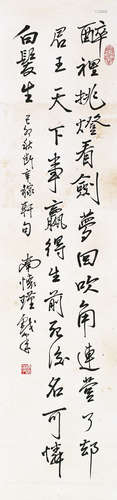 醉裡挑燈看劍夢回吹角連營了却
君王天下事贏得生前死後名可憐
白髮生
己卯秋 辛稼軒句
南懷瑾戲筆